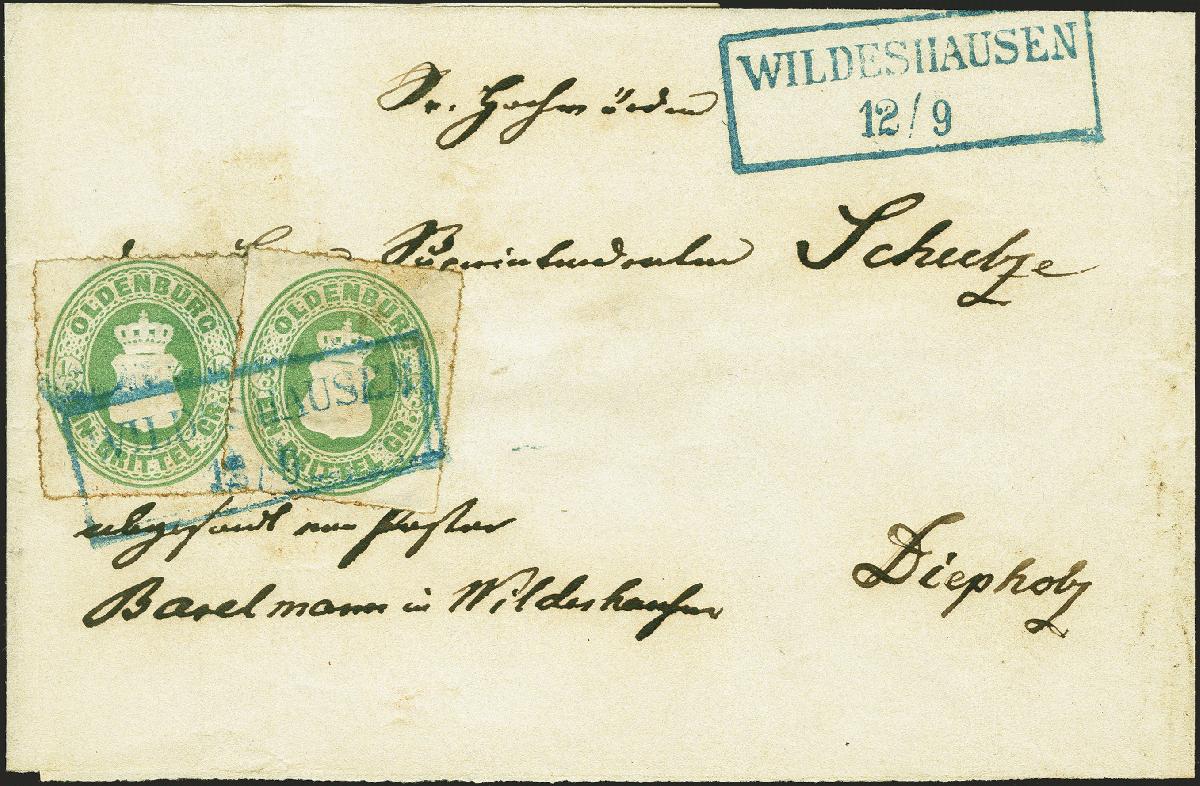 WILDESHAUSEN
12/9
Sr. Hochwürden
Superintendenten Schultze
OLDENBURG
EIN DRITTEL GR.
OLDENBURG
EIN DRITTEL GR.
WILDESHAUSEN
12/9
abgesandt von Pastor
Barelmann in Wildeshausen
Diepholz